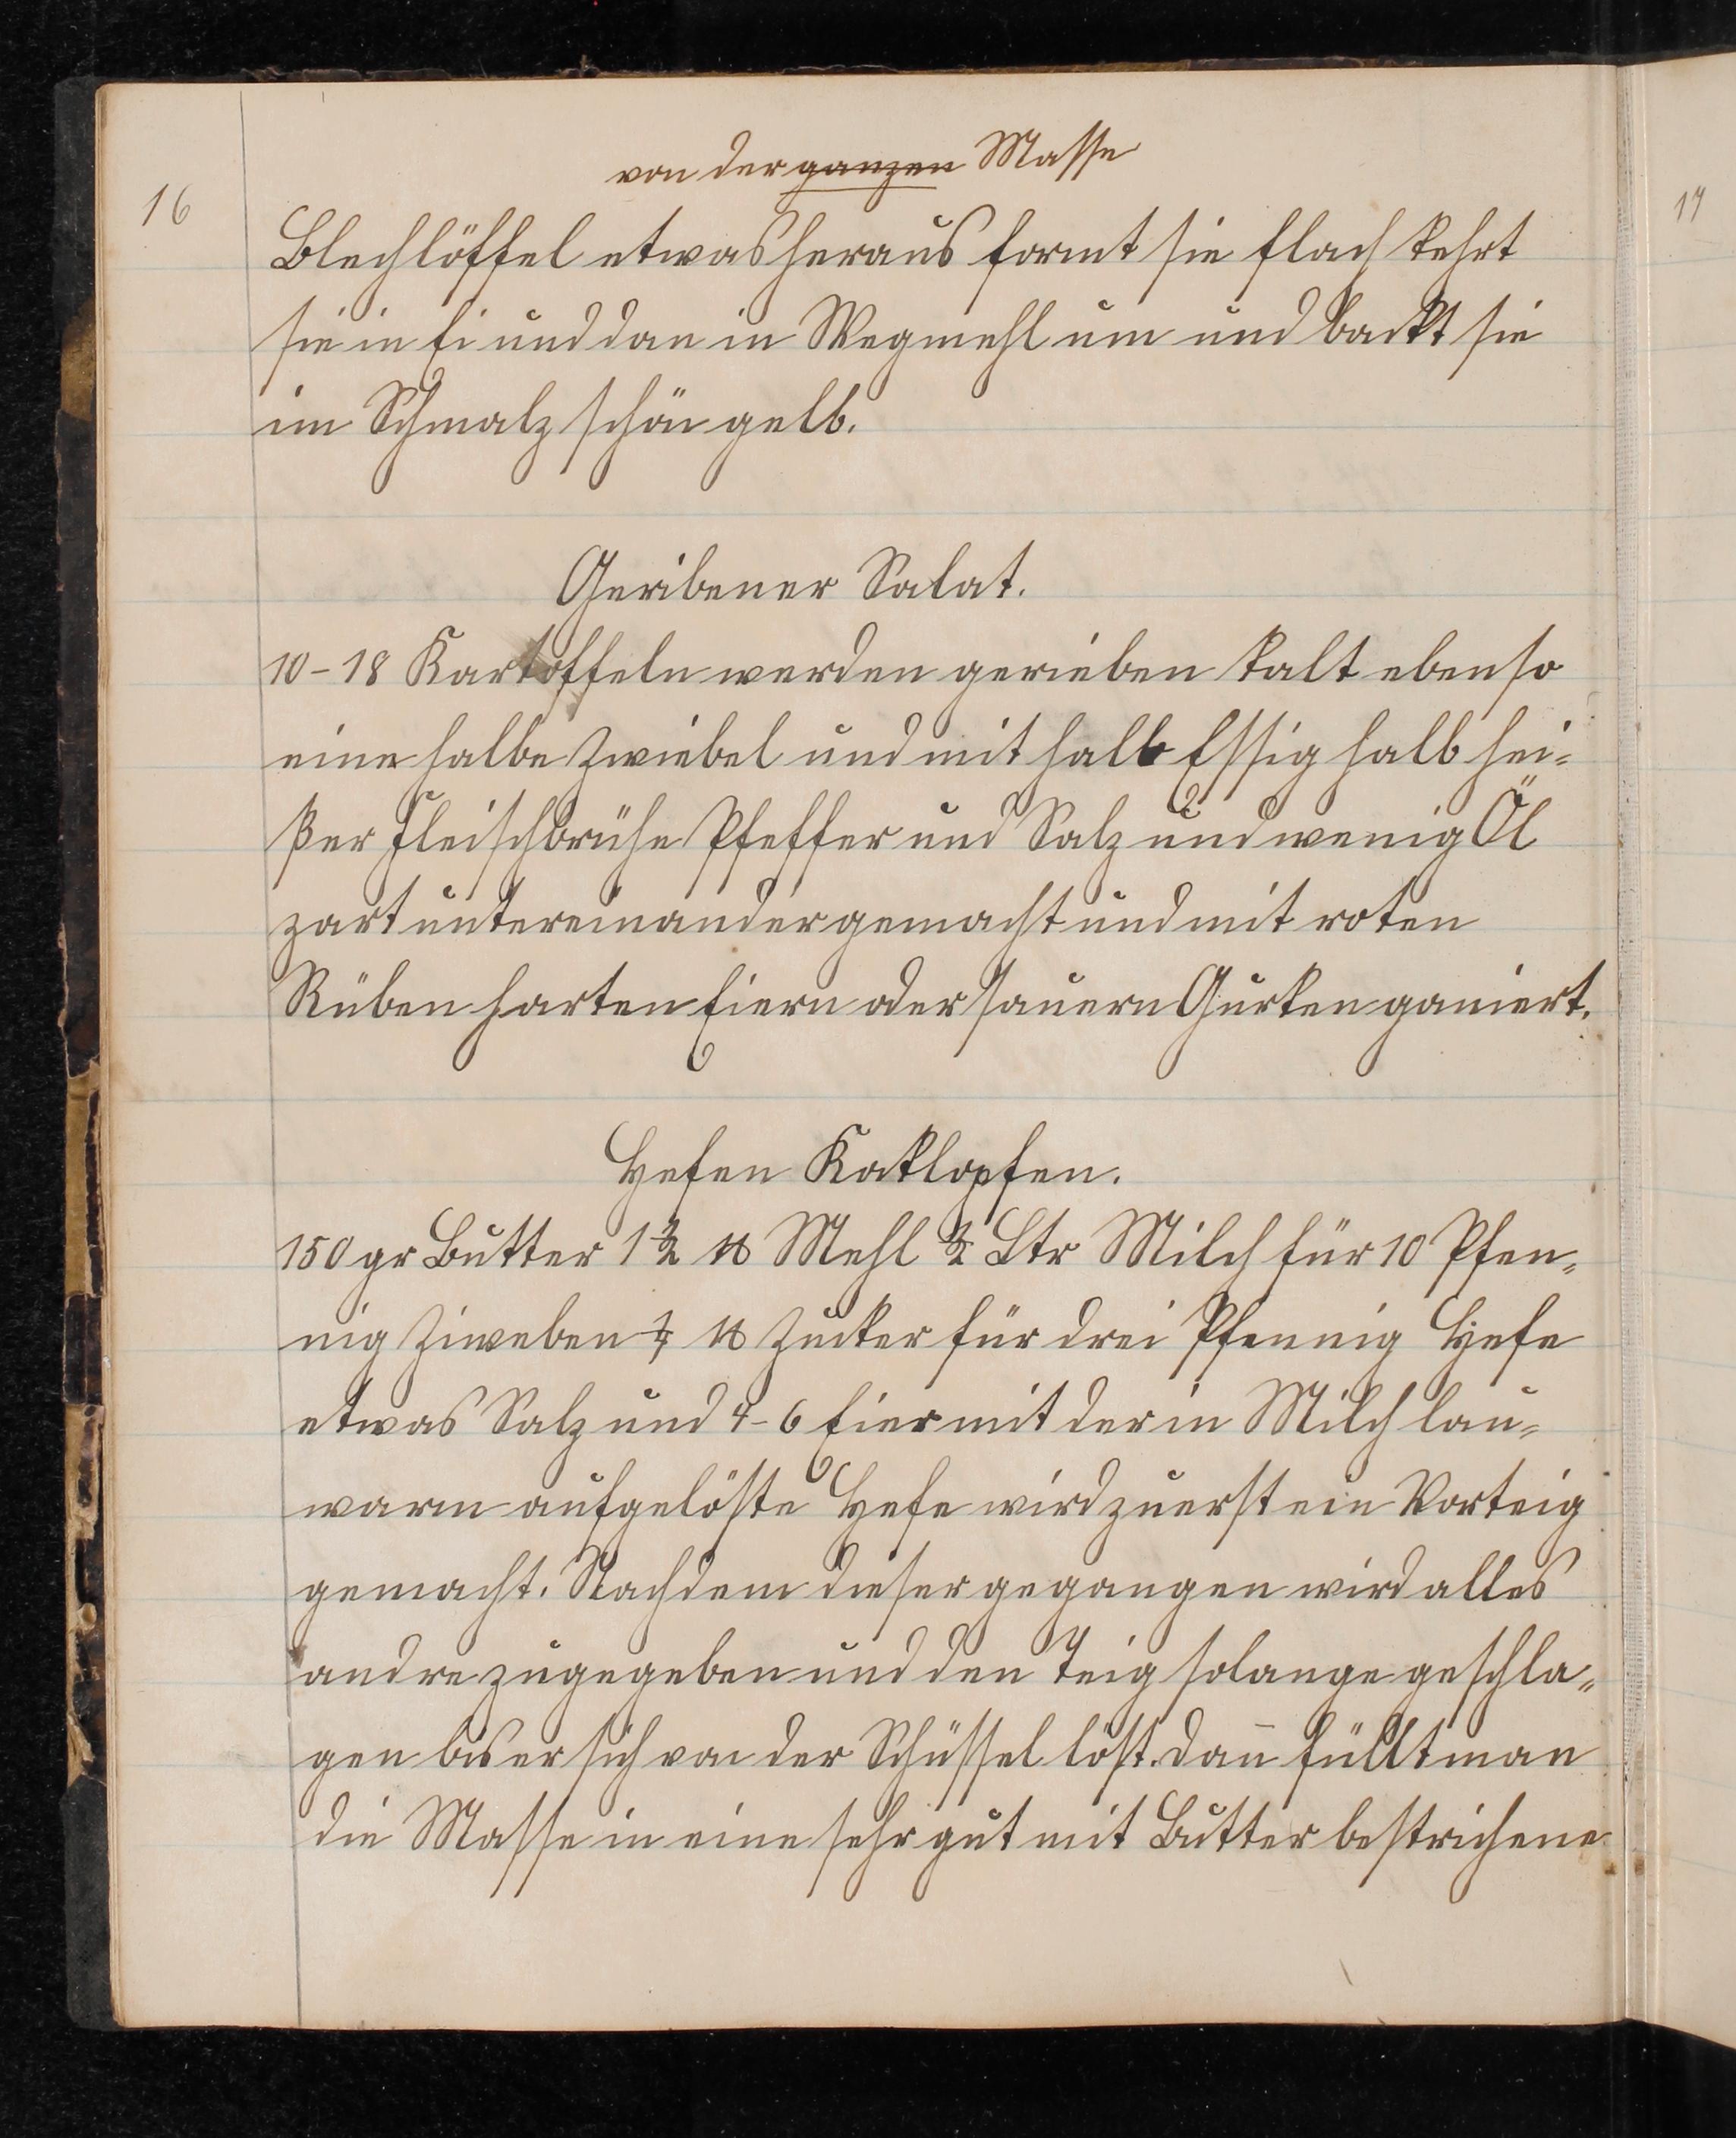 von der ganzen Masse
16
Blechlöffel etwas heraus formt sie flach kehrt
sie in Ei und dan in Wegmehl um und backt sie
im Schmalz schön gelb.
Geribener Salat.
10-18 Kartoffeln werden gerieben kalt ebenso
eine halbe Zwiebel und mit halb Essig halb hei-
ßer Fleischbrühe Pfeffer und Salz und wenig Öl
zart untereinander gemacht und mit roten
Rüben harten Eiern oder sauern Gurken ganiert.
Hefen Koklopfen.
150 gr Butter 1 1/2 ℔ Mehl 1/2 Ltr Milch für 10 Pfen-
nig Ziweben 1/4 ℔ Zucker für drei Pfennig Hefe
etwas Salz und 4-6 Eier mit der in Milch lau-
warm aufgelöste Hefe wird zuerst ein Vorteig
gemacht. Nachdem dieser gegangen wird alles
andre zugegeben und den Teig solange geschla-
gen bis er sich von der Schüssel löst. Dan̄ füllt man
die Masse in eine sehr gut mit Butter bestrichene
17